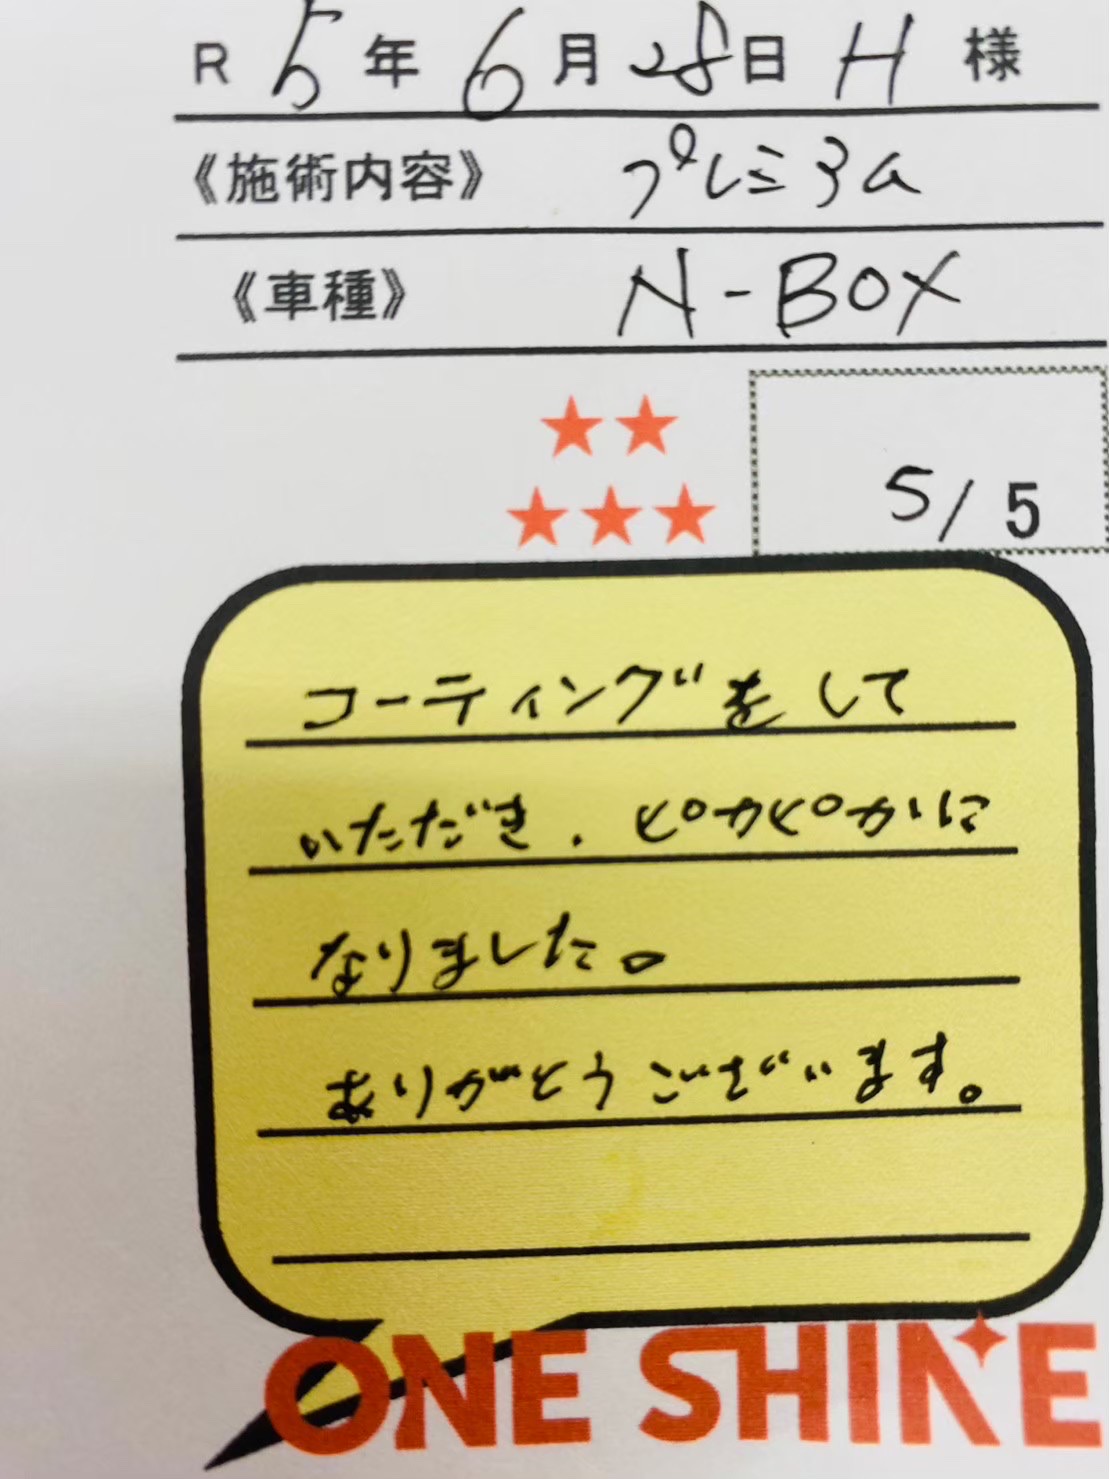 R 5年 6月 28日 H 様
《施術内容》 プレミアム
《車種》 N-BOX
★★
★★★
5/5
コーティングをして
いただき、ピカピカに
なりました。
ありがとうございます。
ONE SHINE